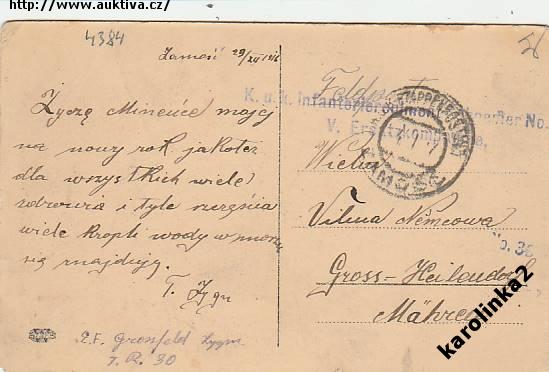 http://www.auktiva.cz/
4384
Zamość 29/XII 1916
Życzę Mineńce mojej
na nowy rok jakoteż
dla wszystkich wiele
zdrowia i tyle szczęścia
wiele kropli wody w morzu
się znajduje.
T. Zygn
Feldpost
K. u. k. Infanterieregiment No.
V. Ersatzkompagnie,
ETAPPENPOSTAMT
ZAMOŚĆ
Vilma Němcowa
No. 30
Gross-Heilendorf
Mähren
I. R. 30
karolinka2